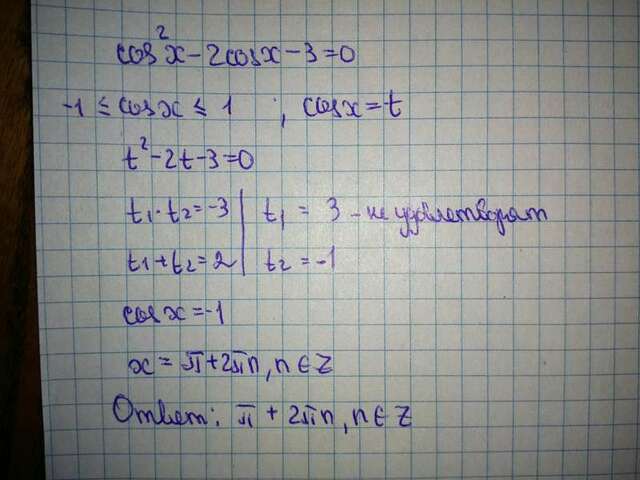 cos²x - 2cosx - 3 = 0
-1 ≤ cosx ≤ 1 ; cosx = t
t² - 2t - 3 = 0
t₁ · t₂ = -3 | t₁ = 3 - не удовлетворят
t₁ + t₂ = 2 | t₂ = -1
cosx = -1
x = π + 2πn, n ∈ Z
Ответ: π + 2πn, n ∈ Z